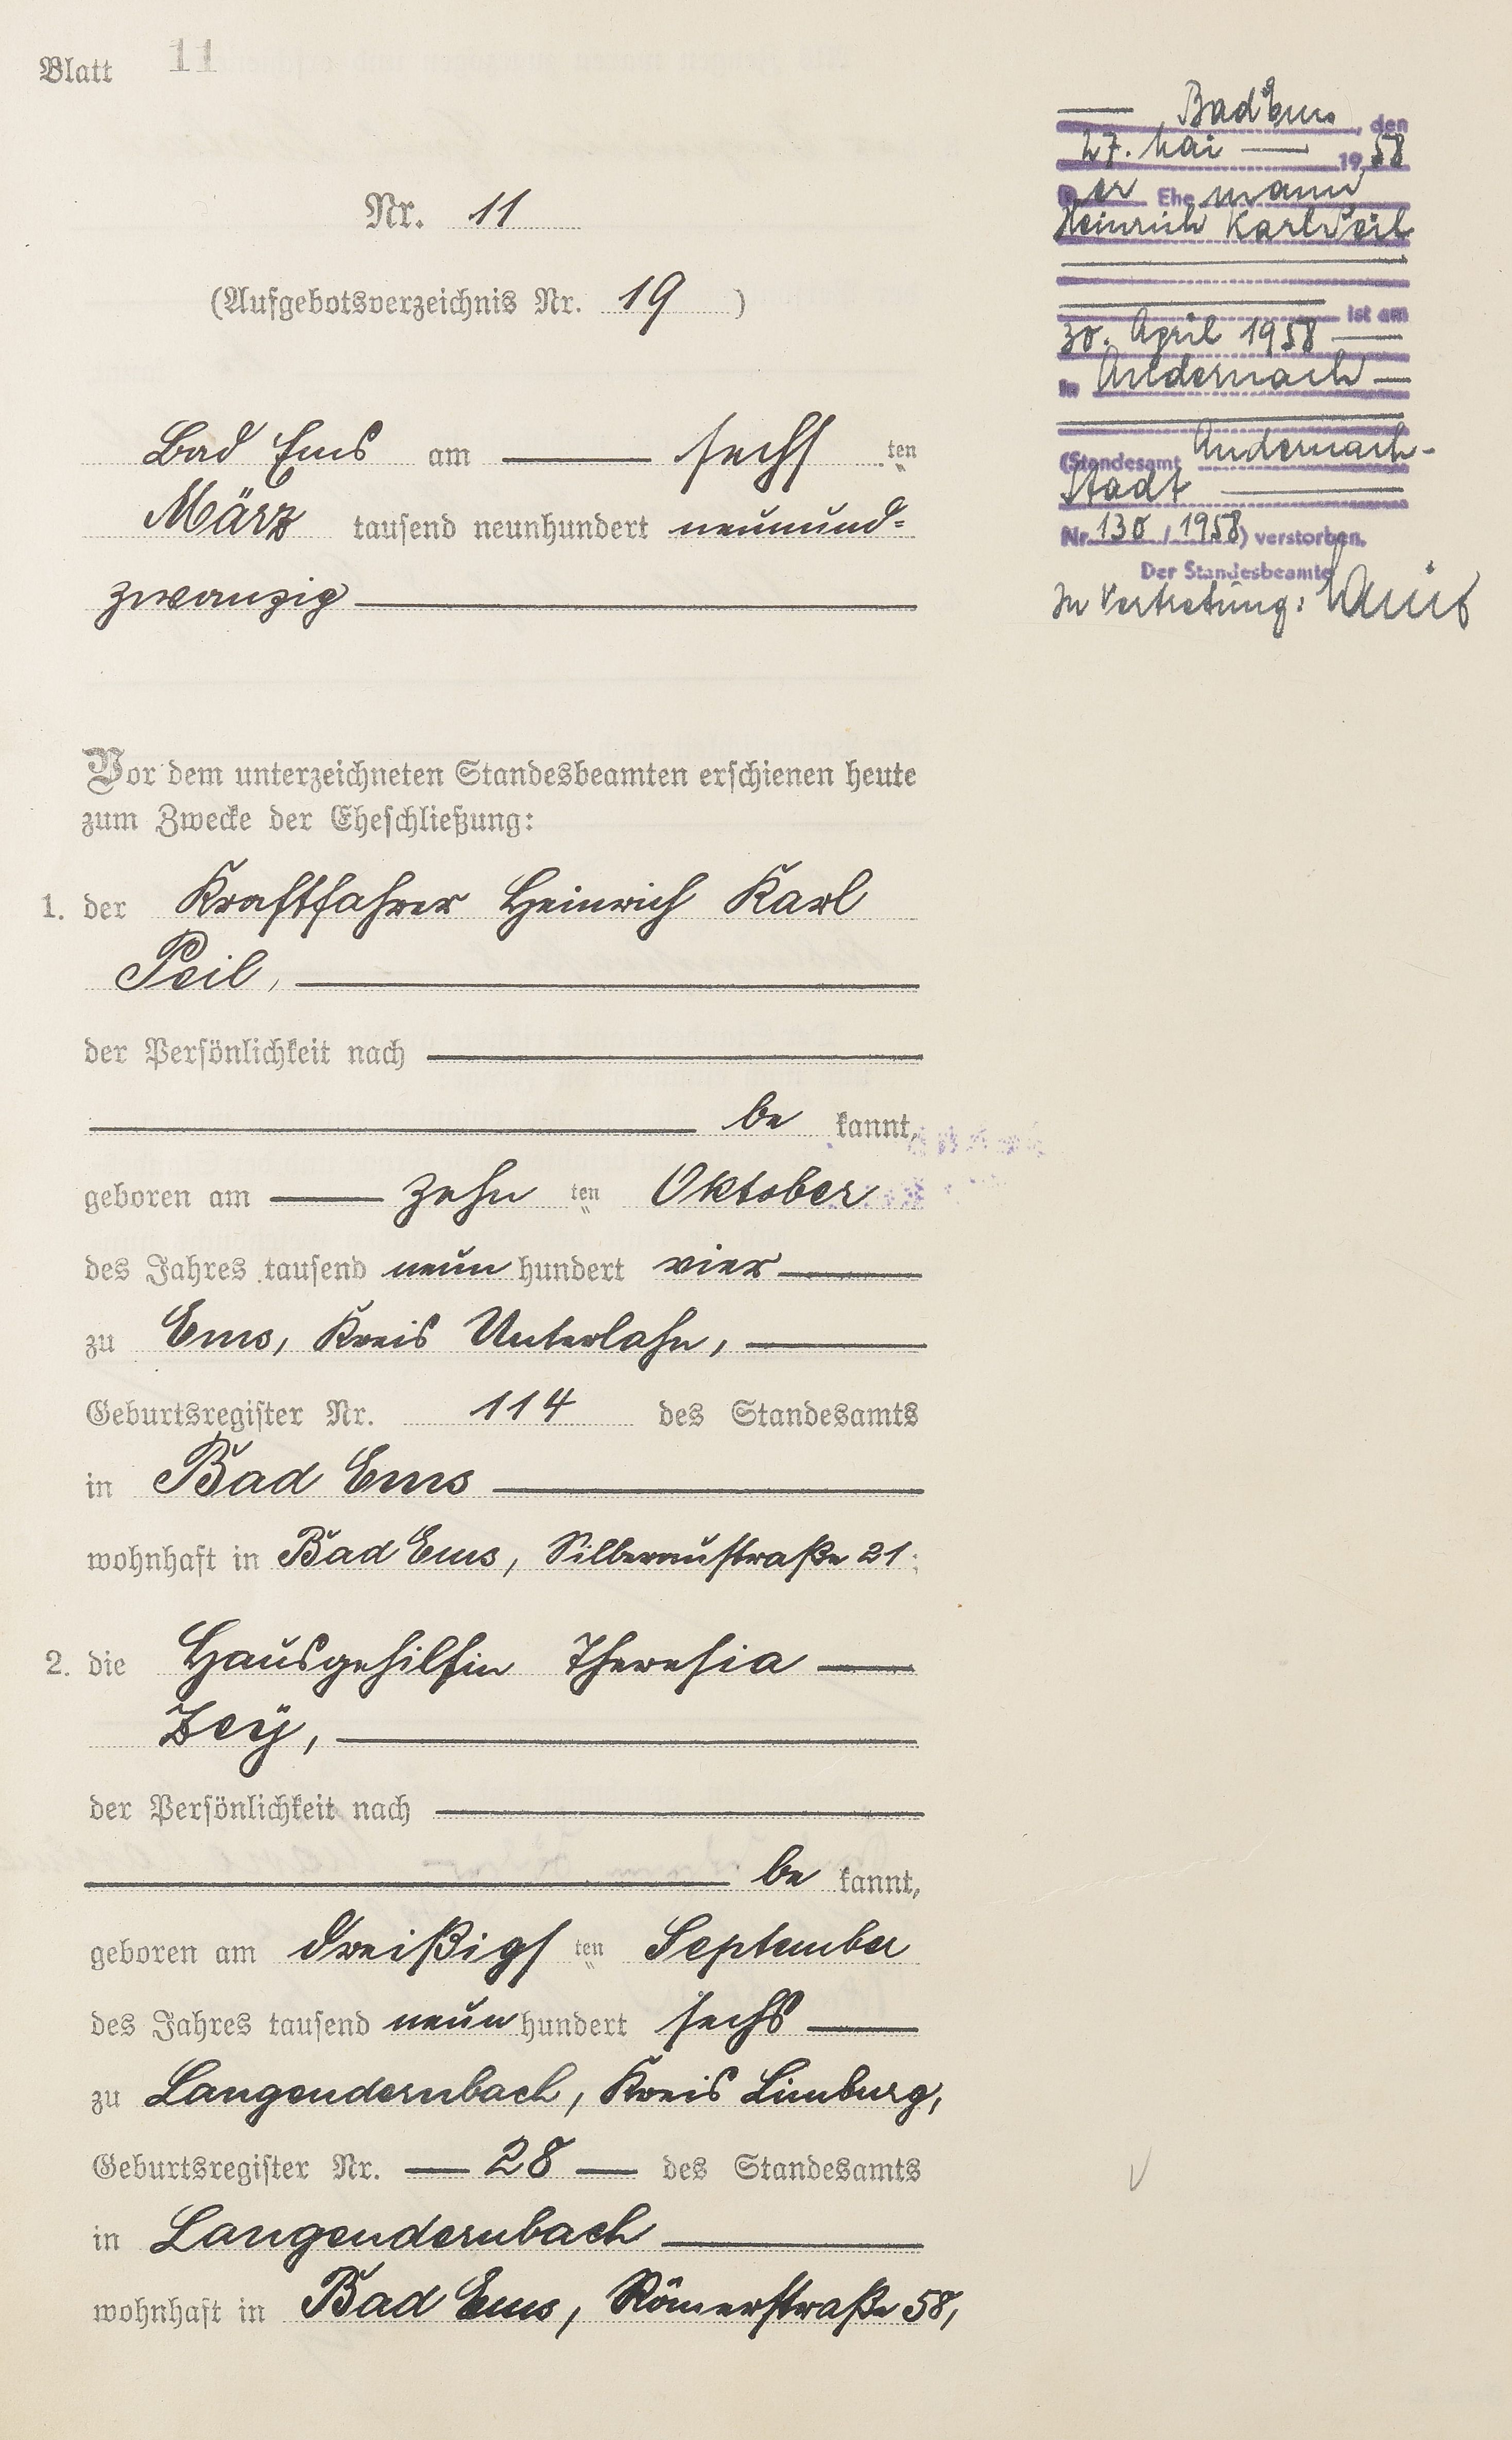 Blatt 11
Nr. 11
(Aufgebotsverzeichnis Nr. 19)
Bad Ems am sechsten
März tausend neunhundert neunund=
zwanzig
Vor dem unterzeichneten Standesbeamten erschienen heute
zum Zwecke der Eheschließung:
1. der Kraftfahrer Heinrich Karl
Peil,
der Persönlichkeit nach
be kannt,
geboren am zehn ten Oktober
des Jahres tausend neun hundert vier
zu Ems, Kreis Unterlahn,
Geburtsregister Nr. 114 des Standesamts
in Bad Ems
wohnhaft in Bad Ems, Silberaustraße 21;
2. die Hausgehilfin Theresia
Zey,
der Persönlichkeit nach
be kannt,
geboren am dreißigs ten September
des Jahres tausend neun hundert sechs
zu Langendernbach, Kreis Limburg,
Geburtsregister Nr. 28 des Standesamts
in Langendernbach
wohnhaft in Bad Ems, Römerstraße 58,
Bad Ems, den
27. Mai 1958
Der Ehemann
Heinrich Karl Peil
ist am
30. April 1958
in Andernach
(Standesamt Andernach-
Stadt
Nr. 130 / 1958) verstorben.
Der Standesbeamte
In Vertretung: